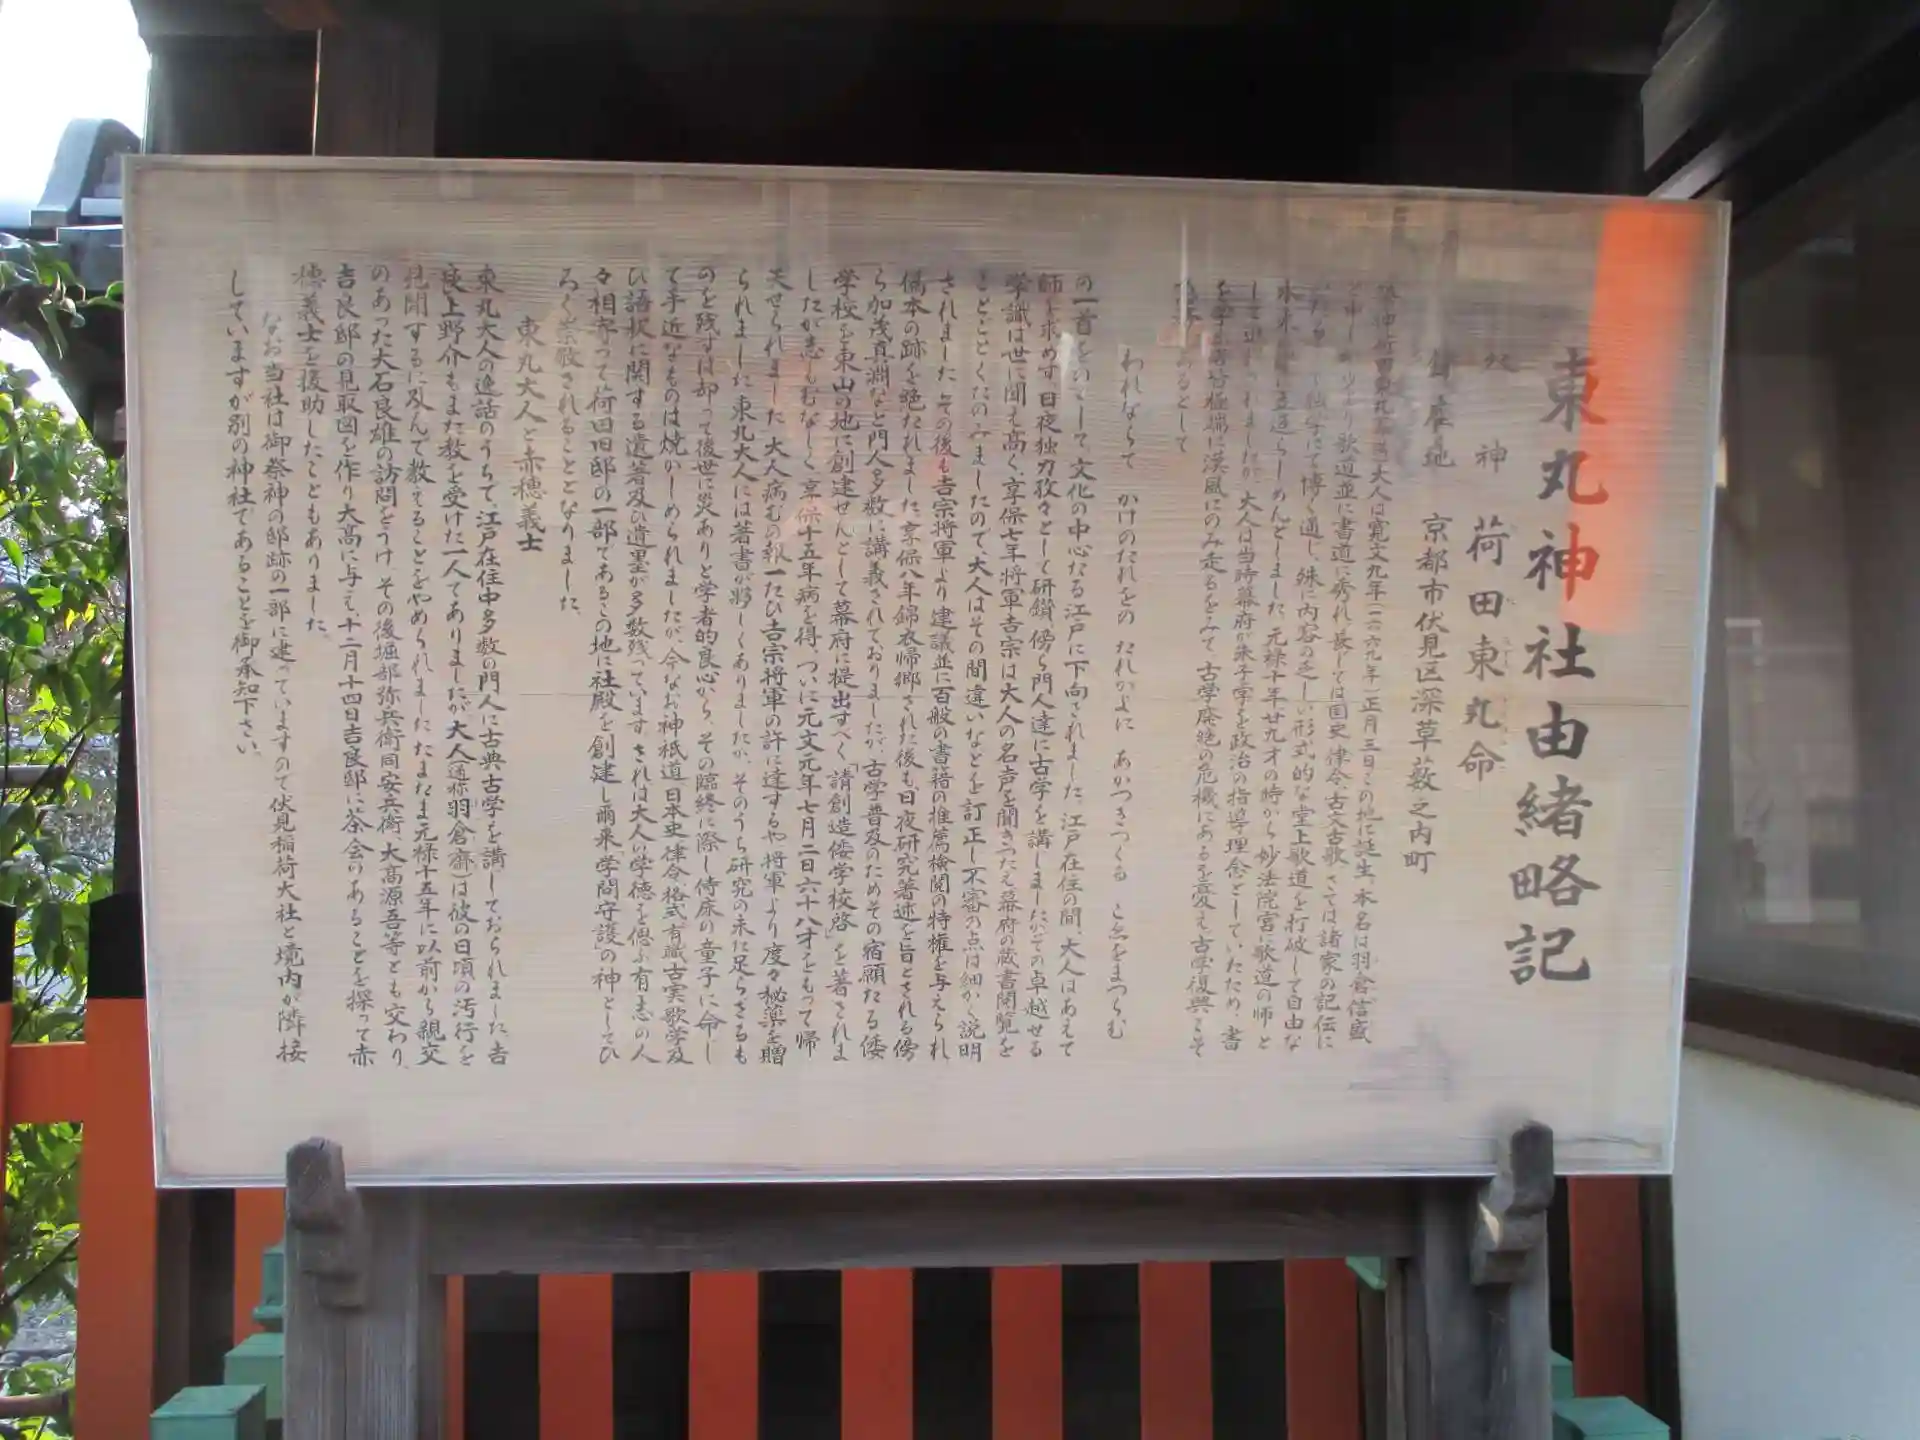 東丸神社由緒略記
祭神 荷田東丸命
御座地 京都市伏見区深草薮之内町
大人は寛文九年(一六六九年)正月三日この地に誕生、本名は羽倉信盛
歌道並に書道に秀れ長じては国史律令、古文古歌さては諸家の記伝に
独学にて博く通し、殊に内容の乏しい形式的な堂上歌道を打破して自由な
らしめんとしました。元禄十年廿九才の時から妙法院宮に歌道の師と
して れましたが、大人は当時幕府が朱子学を政治の指導理念としていたため、書
を学 極端に漢風にのみ走るをみて、古学廃絶の危機にあるを憂え、古学復興こそ
あるとして
われならて かけのたれをの たれかよに あかつきつくる こゑをまつらむ
の一首をいして、文化の中心たる江戸に下向されました。江戸在住の間、大人はあえて
師を求めず、日夜独力孜々として研鑚、傍ら門人達に古学を講しましたがその卓越せる
学識は世に聞え高く、享保七年将軍吉宗は大人の名声を聞きつたえ幕府の蔵書閲覧を
ことごとくたのみましたので、大人はその間違いなどを訂正し不審の点は細かく説明
されました。その後も吉宗将軍より建議並に百般の書籍の推薦検閲の特権を与えられ
偽本の跡を絶たれました。享保八年錦衣帰郷された後も、日夜研究著述を旨とされる傍
ら加茂真淵など門人多数に講義されておりましたが、古学普及のためその宿願たる倭
学校を東山の地に創建せんとして幕府に提出すべく「請創造倭学校啓」を著されま
したが志しもむなしく享保十五年病を得、ついに元文元年七月二日六十八才をもって帰
天せられました。大人病むの報一たび吉宗将軍の許に達するや将軍より度々秘薬を贈
られました東丸大人には著書が夥しくありましたが、そのうち研究の未だ足らざるも
のを残すは却って後世に災ありと学者的良心から、その臨終に際し侍床の童子に命し
て手近なものは焼かしめられましたが、今なお神祇道、日本史、律令格式、有職古実、歌学及
ひ語釈に関する遺著及び遺墨が多数残っています。されは大人の学徳を偲ぶ有志の人
々相寄って荷田旧邸の一部であるこの地に社殿を創建し爾来、学問守護の神としてひ
ろく崇敬されることとなりました。
東丸大人と赤穂義士
東丸大人の逸話のうちで、江戸在住中多数の門人に古典古学を講しておられました、吉
良上野介もまた教を受けた一人てありましたが、大人(通称羽倉斎)は彼の日頃の汚行を
見聞するに及んで教えることをやめられました。たまたま元禄十五年に以前から親交
のあった大石良雄の訪問をうけ、その後堀部弥兵衛、同安兵衛、大高源吾等とも交わり、
吉良邸の見取図を作り大高に与え、十二月十四日吉良邸に茶会のあることを探って赤
穂義士を援助したこともありました。
なお当社は御祭神の邸跡の一部に建っていますので伏見稲荷大社と境内が隣接
していますが別の神社であることを御承知下さい。